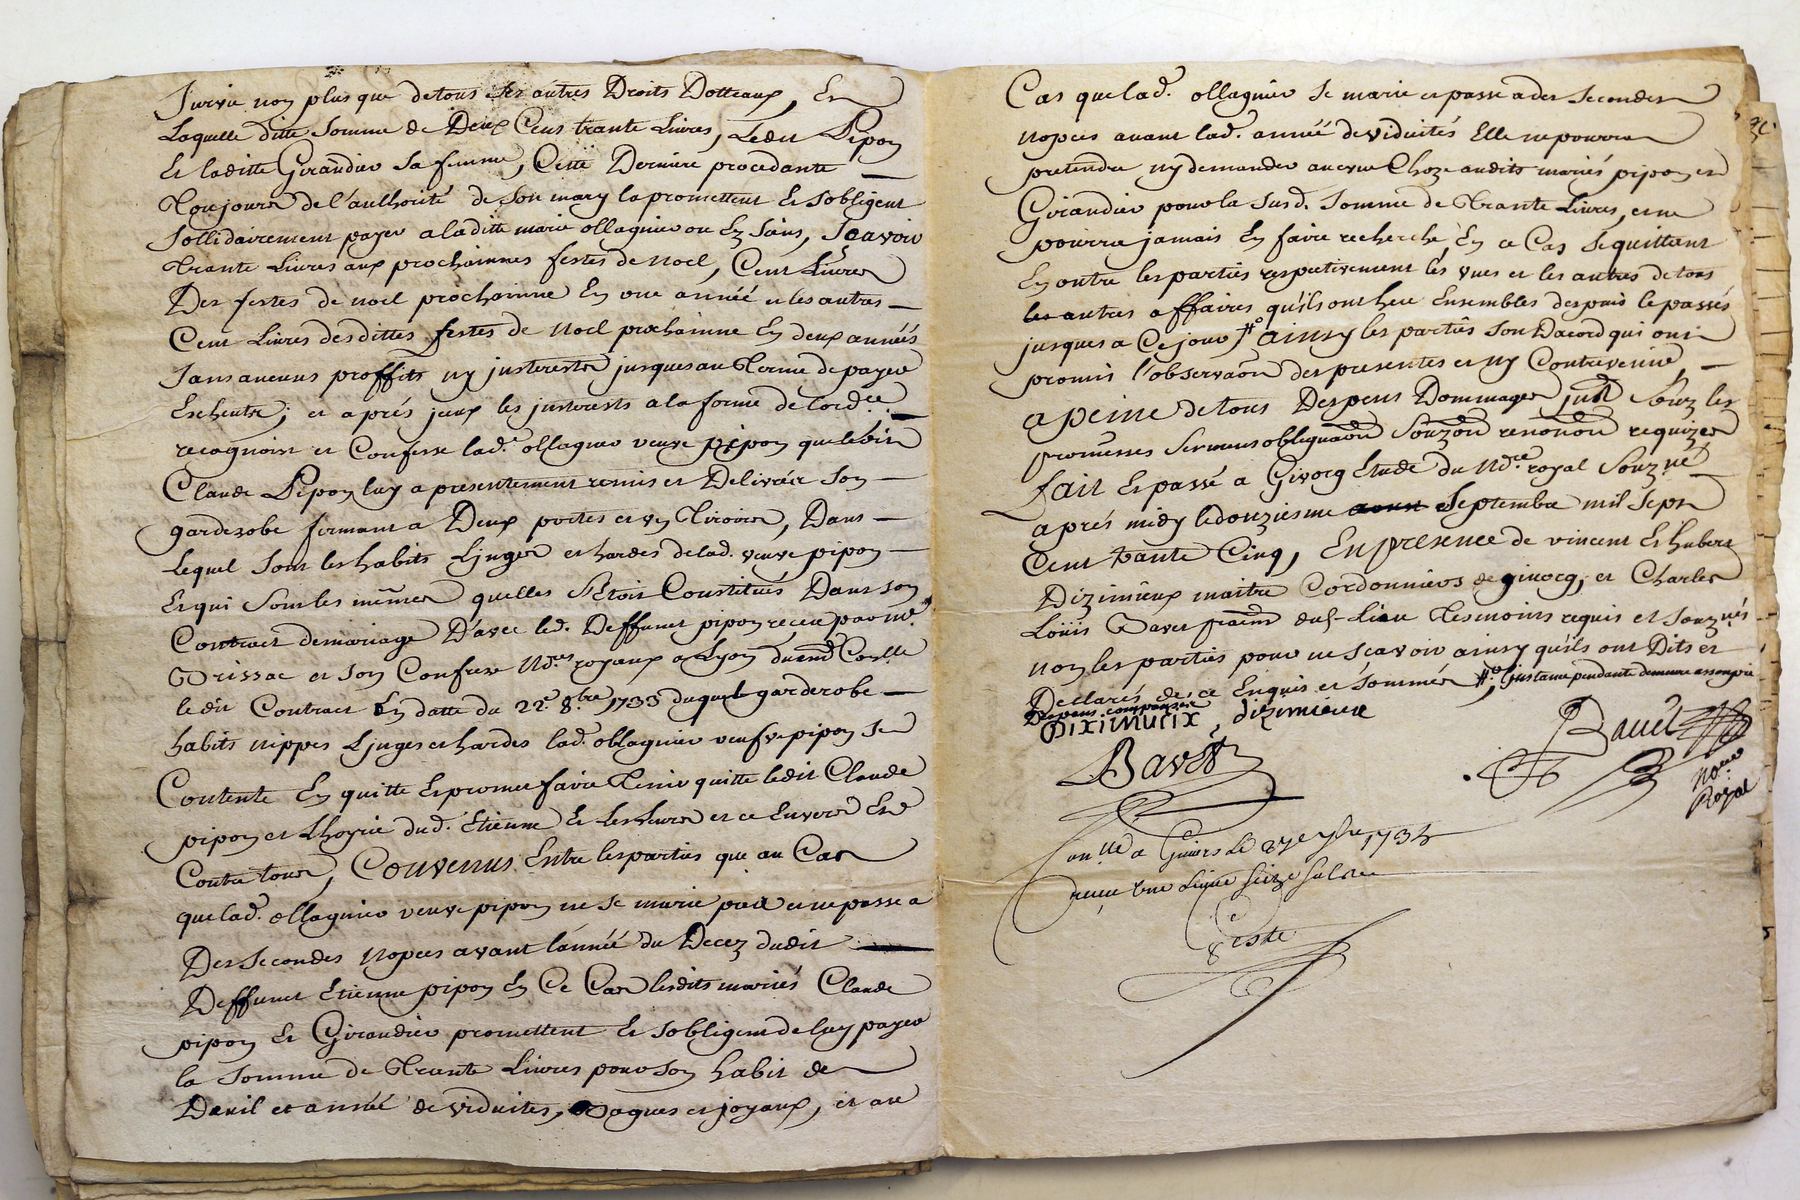 survie non plus que de tous ses autres Droits Dotteaux, Et
Laquelle ditte somme de Deux Cens trante Livres, Ledit Pipon
Et laditte Girandier sa femme, Cette Derniere procedante
Toujours de l'authorité de son mary la promettent Et sobligent
sollidairement payer a laditte marie ollagnier ou Es siens, Sçavoir
Trante Livres aux prochainnes festes de noel, Cent Livres
Des festes de noel prochainne En une année et les autres
Cent Livres desdittes festes de Noel prochainne En deux années
sans aucuns proffits ny justerests jusques au Terme de payer
Escheutes; et aprés jeux les justerests a la forme de lord.ce
recognoist et Confesse lad.e ollagnier veuve pipon que ledit
Claude Pipon luy a presentement remis et Delivrée son
garderobe fermant a Deux portes et un Tiroire, Dans
lequel sont les habits Linges et hardes de lad. veuve pipon
Et qui sont les mêmes quelles s'Etoit Constitués Dans son
Contract de mariage D'avec led. Deffunct pipon receu par m.e
Brissac et son Confrere N.res royaux a Lyon
ledit Contract En datte du 22.e 8.bre 1733 duquel garderobe
habits nippes Linges et hardes lad. ollagnier veufve pipon se
Contente En quitte Et promet faire Tenir quitte ledit Claude
pipon et Lhoyrie dud. Etienne Et les leurs et ce Envers Et
Contre tous, Convenus Entre les parties que au Cas
que lad.e ollagnier veuve pipon ne se marie pas et ne passe a
Des secondes Nopces avant lannée du Decez dudit
Deffunct Etienne pipon En Ce Cas lesdits mariés Claude
pipon Et Girandier promettent Et sobligent de luy payer
la somme de Trante Livres pour son habit de
Deuil et année de viduites, Bagues et joyaux, et au
Cas que lad.e ollagnier se marie et passe a des secondes
nopces avant lad.e année de viduités Elle ne pourra
pretendre ny demander aucune Choze audits mariés pipon et
Girandier pour la susd. somme de Trante Livres, et ne
pourra jamais En faire recherche En ce Cas se quittant
En outre les parties respectivement les unes et les autres de tous
les autres affaires qu'ils ont heu Ensembles despuis le passés
jusques a Ce jour # ainsy les partiês son Dacord qui ont
promis l'observaôn des presentes et ny Contrevenir
a peine de tous Despens Dommages Souz les
promesses sermens obligaôn renonôn requizes
fait Et passé a Givorg Etude du N.re royal Souzné
aprés midy le douziesme Septembre mil Sept
Cent trante Cinq, En presence de vincent Et hubert
Dizimieux maitre Cordonniers de givorg, et Charles
Loüis Bavet dud. Lieu Tesmoins requis et souznés
non les parties pour ne sçavoir ainsy qu'ils ont Dits et
Declarés de ce Enquis et sommés #, Linstance pendante demeure assoupie
Despens compansés
DIXIMIEUX, dizimieux
Bavet
Bavet
No.re
Royal
Con.llé a Givors Le 27e 7bre 1735
receu une Livre seize sols
Ceste